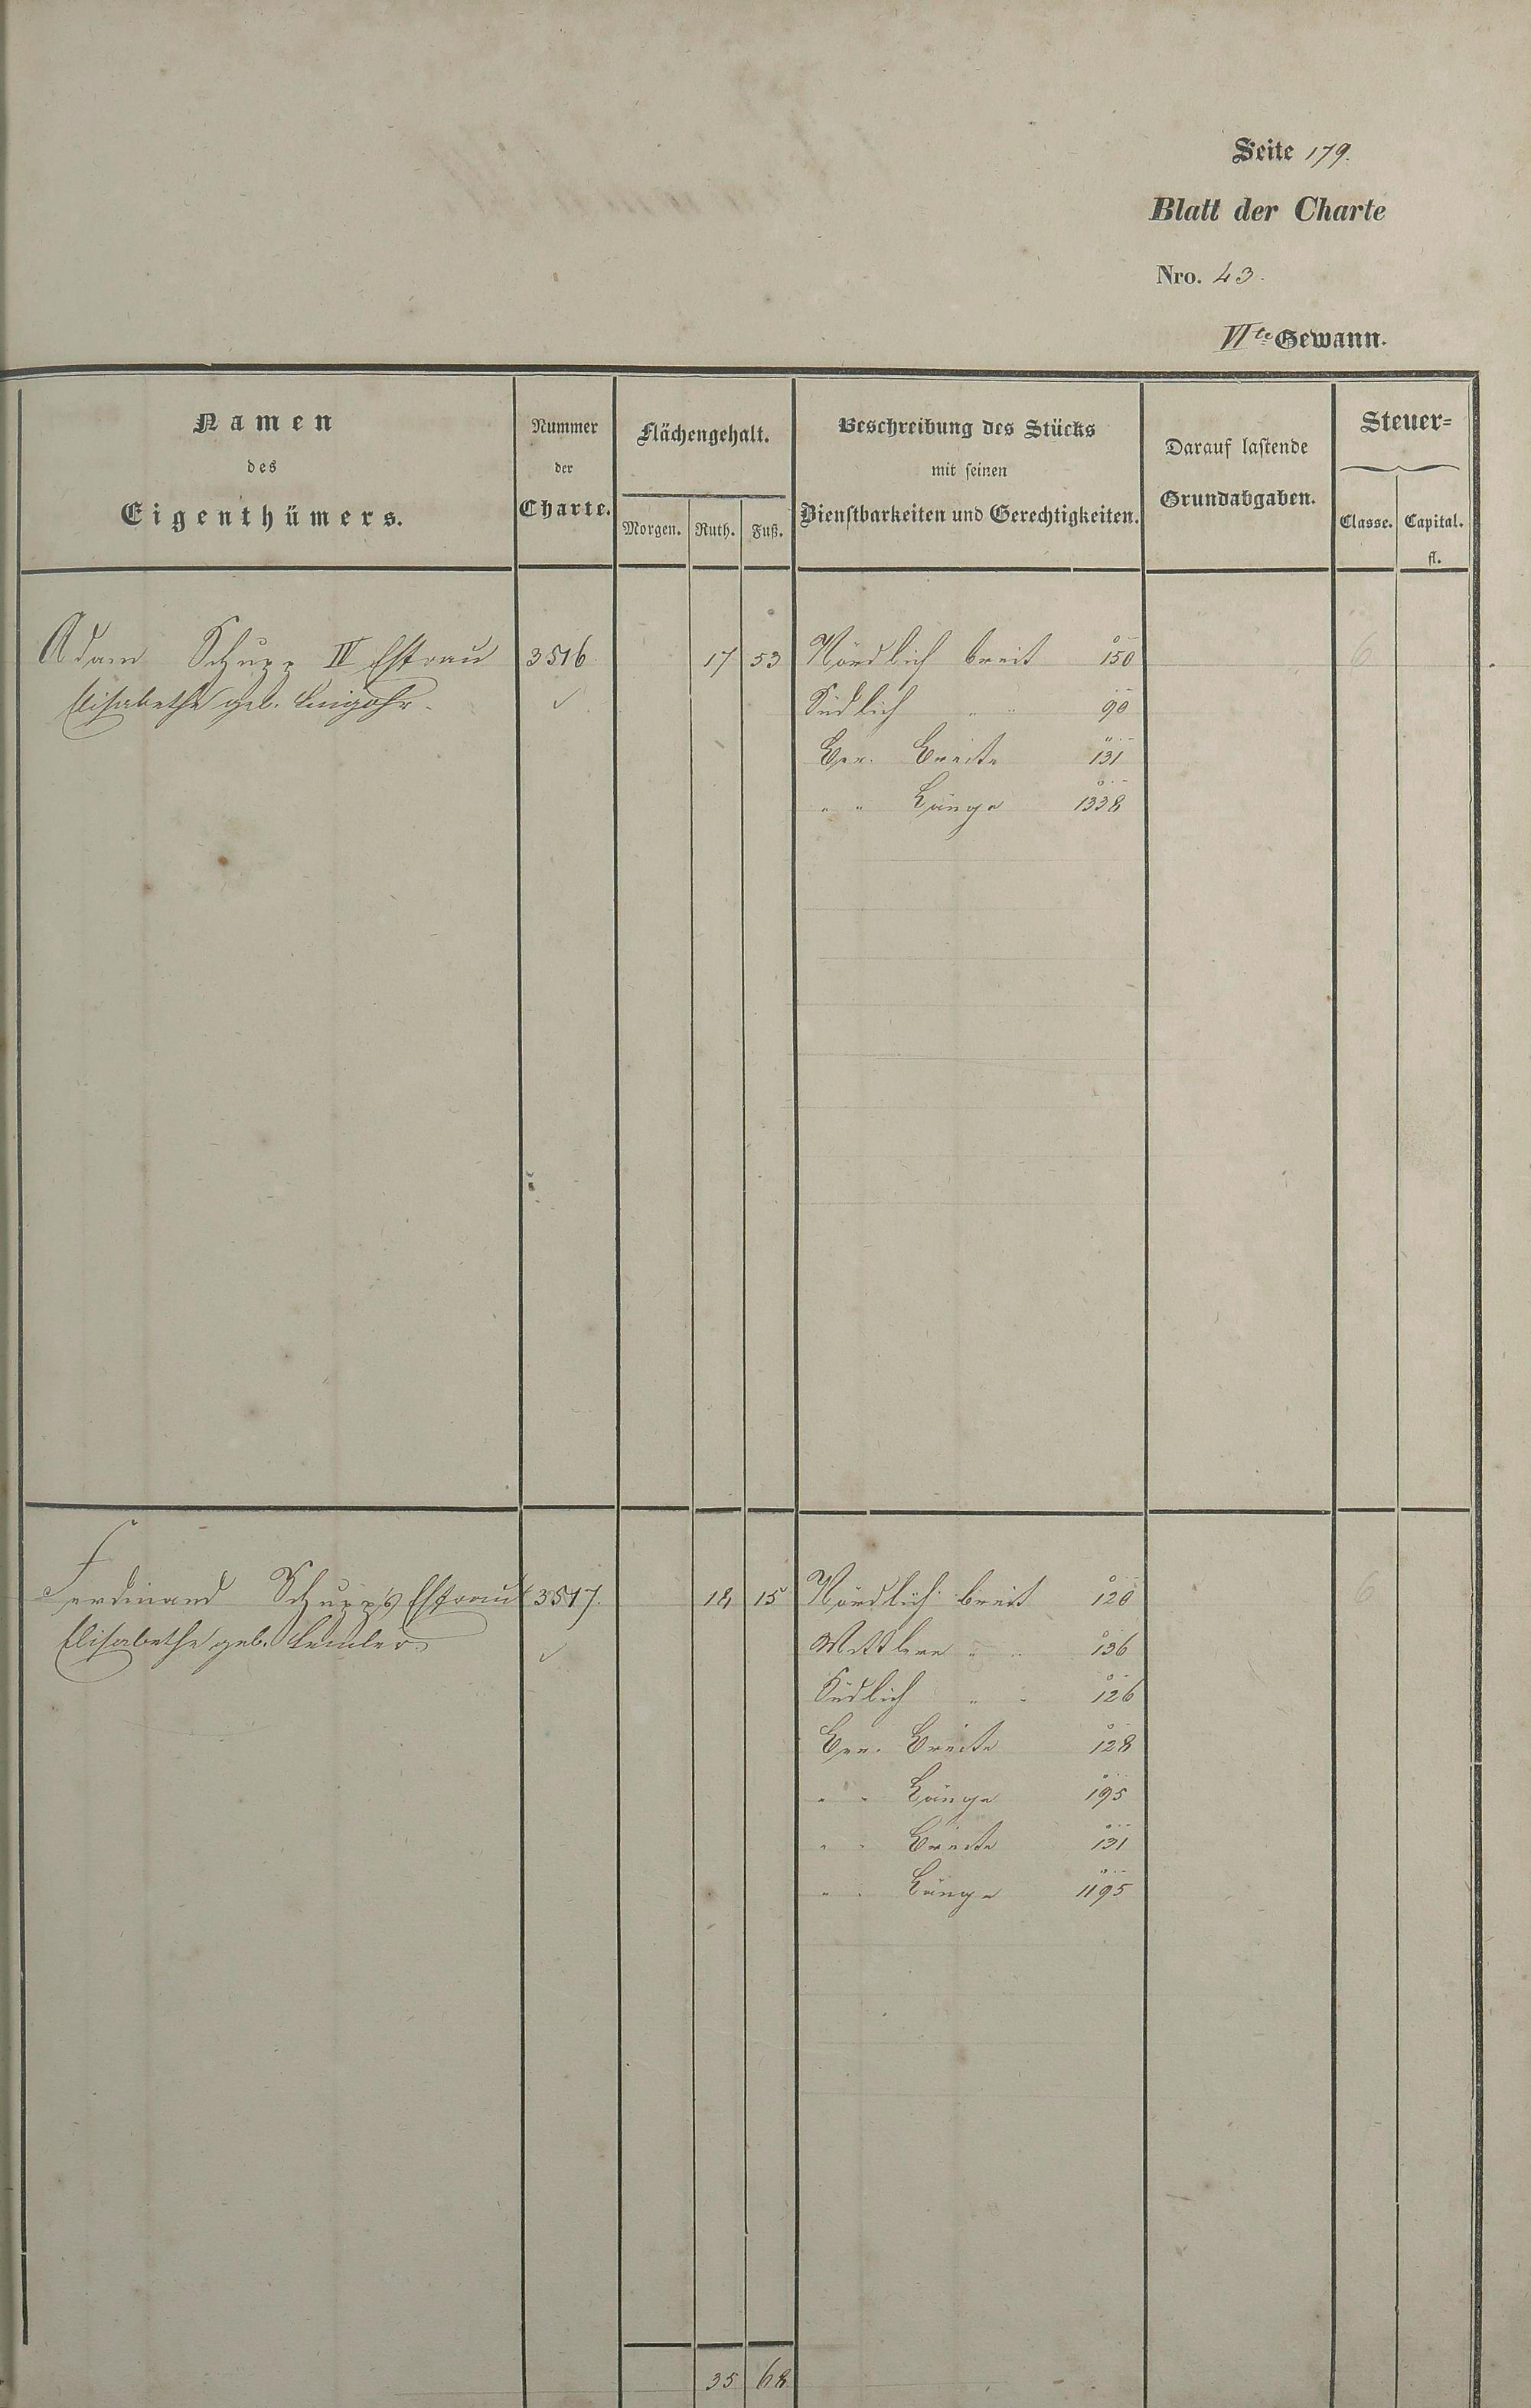 Seite 179.
Blatt der Charte
Nro. 43.
VIte Gewann.
Namen
des
Eigenthümers.
Nummer
der
Charte.
Flächengehalt.
Morgen. Ruth. Fuß.
Beschreibung des Stücks
mit seinen
Dienstbarkeiten und Gerechtigkeiten.
Darauf lastende
Grundabgaben.
Steuer=
Classe. Capital.
fl.
Adam Schupp IV Ehfrau 3516 17 53 Nördlich breit 150 6
Elisabethe geb. Südlich " " 90
Ger. Breite 131
" " Länge 1338
Ferdinand Schupp's Ehfrau 3517. 18 15 Nördlich breit 120 6
Elisabethe geb. Lemler. Mittlere " " 136
Südlich " " 126
Ger. Breite 128
" " Länge 195
" " Breite 131
" " Länge 1195
35 68